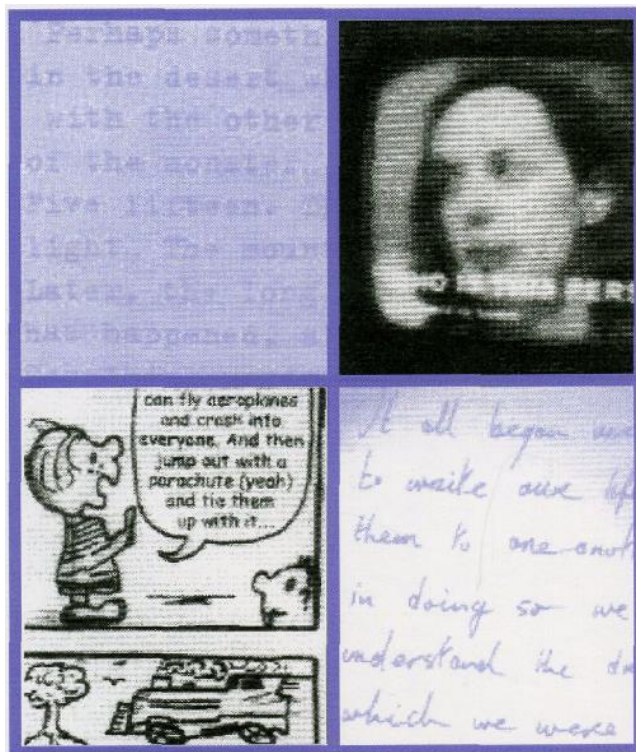 Perhaps someth
in the desert w
with the other
of the monster.
Five fifteen. T
light. The moun
Later, the long
has happened, a
can fly aeroplanes
and crash into
everyone. And then
jump out with a
parachute (yeah)
and tie them
up with it...
It all began
to write our
them to one anot
in doing so we
understand the
which we were